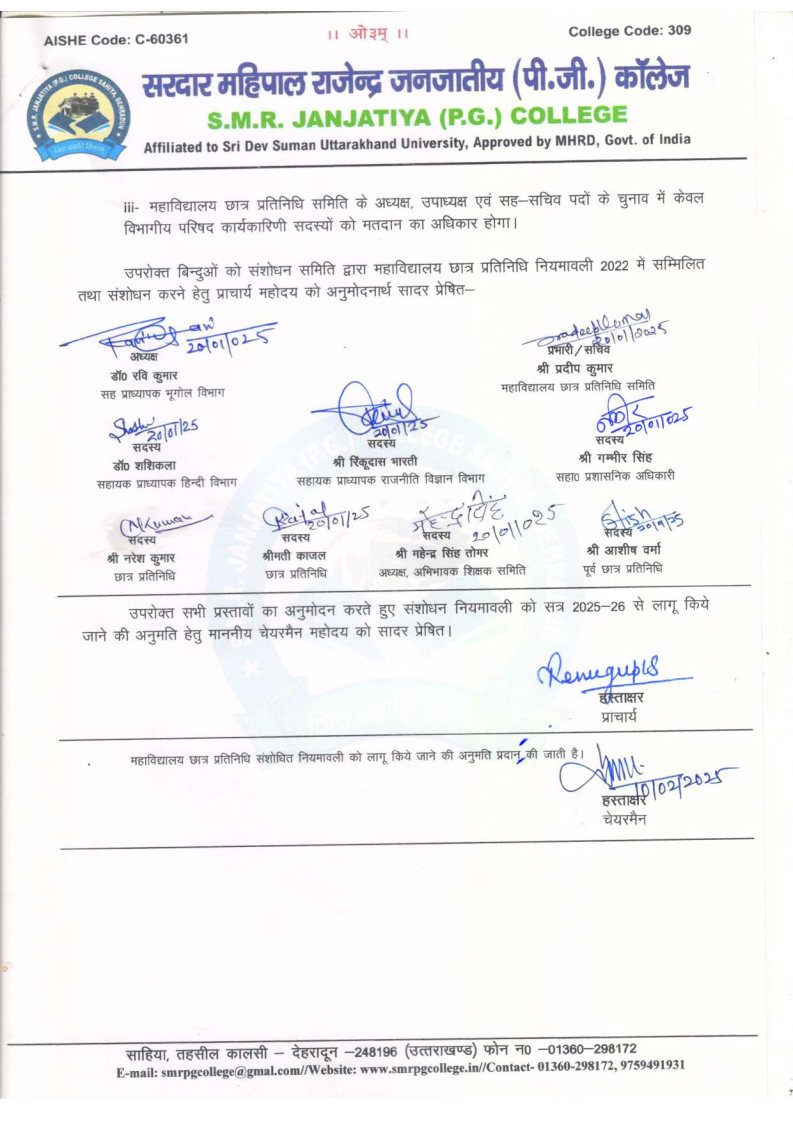 AISHE Code: C-60361
।। ओ३म् ।।
College Code: 309
सरदार महिपाल राजेन्द्र जनजातीय (पी.जी.) कॉलेज
S.M.R. JANJATIYA (P.G.) COLLEGE
Affiliated to Sri Dev Suman Uttarakhand University, Approved by MHRD, Govt. of India
iii- महाविद्यालय छात्र प्रतिनिधि समिति के अध्यक्ष, उपाध्यक्ष एवं सह–सचिव पदों के चुनाव में केवल
विभागीय परिषद कार्यकारिणी सदस्यों को मतदान का अधिकार होगा।
उपरोक्त बिन्दुओं को संशोधन समिति द्वारा महाविद्यालय छात्र प्रतिनिधि नियमावली 2022 में सम्मिलित
तथा संशोधन करने हेतु प्राचार्य महोदय को अनुमोदनार्थ सादर प्रेषित–
20/01/025
अध्यक्ष
डॉ0 रवि कुमार
सह प्राध्यापक भूगोल विभाग
Pradeep Kumar
20/01/2025
प्रभारी/सचिव
श्री प्रदीप कुमार
महाविद्यालय छात्र प्रतिनिधि समिति
Shashi
20/01/25
सदस्य
डॉ0 शशिकला
सहायक प्राध्यापक हिन्दी विभाग
20/01/25
सदस्य
श्री रिंकूदास भारती
सहायक प्राध्यापक राजनीति विज्ञान विभाग
20/01/025
सदस्य
श्री गम्भीर सिंह
सहा0 प्रशासनिक अधिकारी
NKumar
सदस्य
श्री नरेश कुमार
छात्र प्रतिनिधि
Kajal
20/01/25
सदस्य
श्रीमती काजल
छात्र प्रतिनिधि
महेन्द्र सिंह
20/01/025
सदस्य
श्री महेन्द्र सिंह तोमर
अध्यक्ष, अभिभावक शिक्षक समिति
सदस्य
श्री आशीष वर्मा
पूर्व छात्र प्रतिनिधि
उपरोक्त सभी प्रस्तावों का अनुमोदन करते हुए संशोधन नियमावली को सत्र 2025–26 से लागू किये
जाने की अनुमति हेतु माननीय चेयरमैन महोदय को सादर प्रेषित।
Renugupta
हस्ताक्षर
प्राचार्य
महाविद्यालय छात्र प्रतिनिधि संशोधित नियमावली को लागू किये जाने की अनुमति प्रदान की जाती है।
10/02/2025
हस्ताक्षर
चेयरमैन
साहिया, तहसील कालसी – देहरादून –248196 (उत्तराखण्ड) फोन न0 –01360–298172
E-mail: smrpgcollege@gmal.com//Website: www.smrpgcollege.in//Contact- 01360-298172, 9759491931